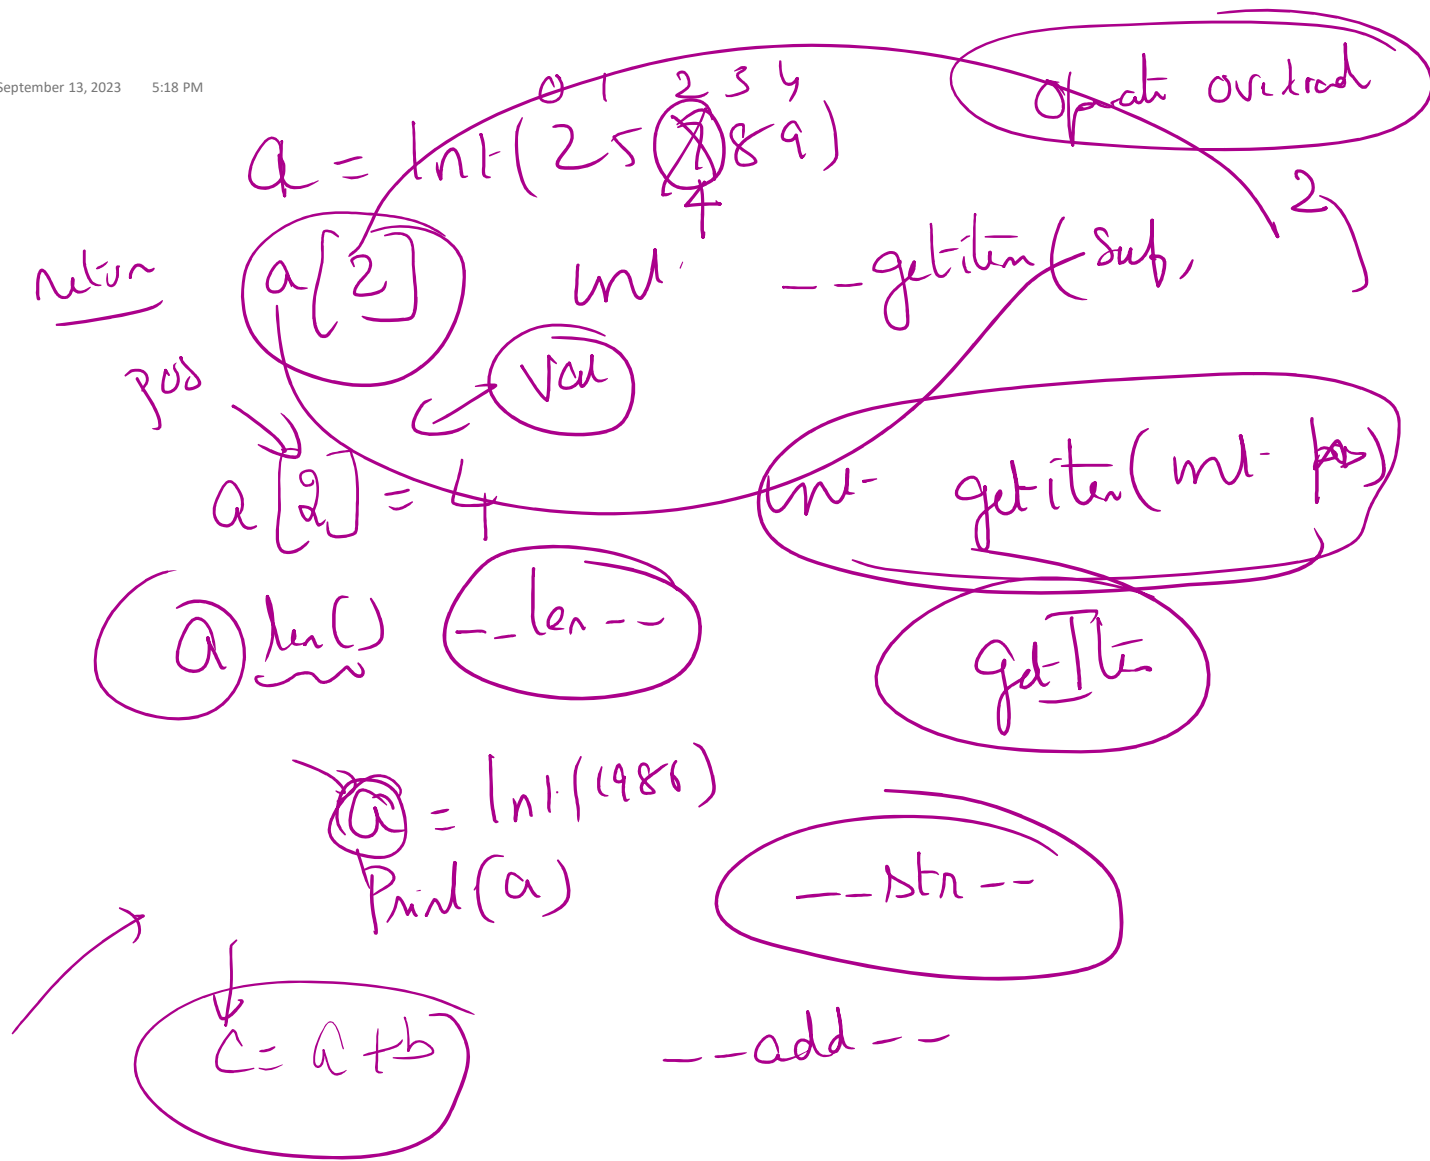 September 13, 2023 5:18 PM
0 1 2 3 4
Operato overload
a = Int(25789)
4
return a[2] int __getitem(self, 2)
pos val
a[2] = 4 int getitem(int pos)
a len() __len__ getItem
a = Int(1986)
Print(a) __str__
c = a+b __add__